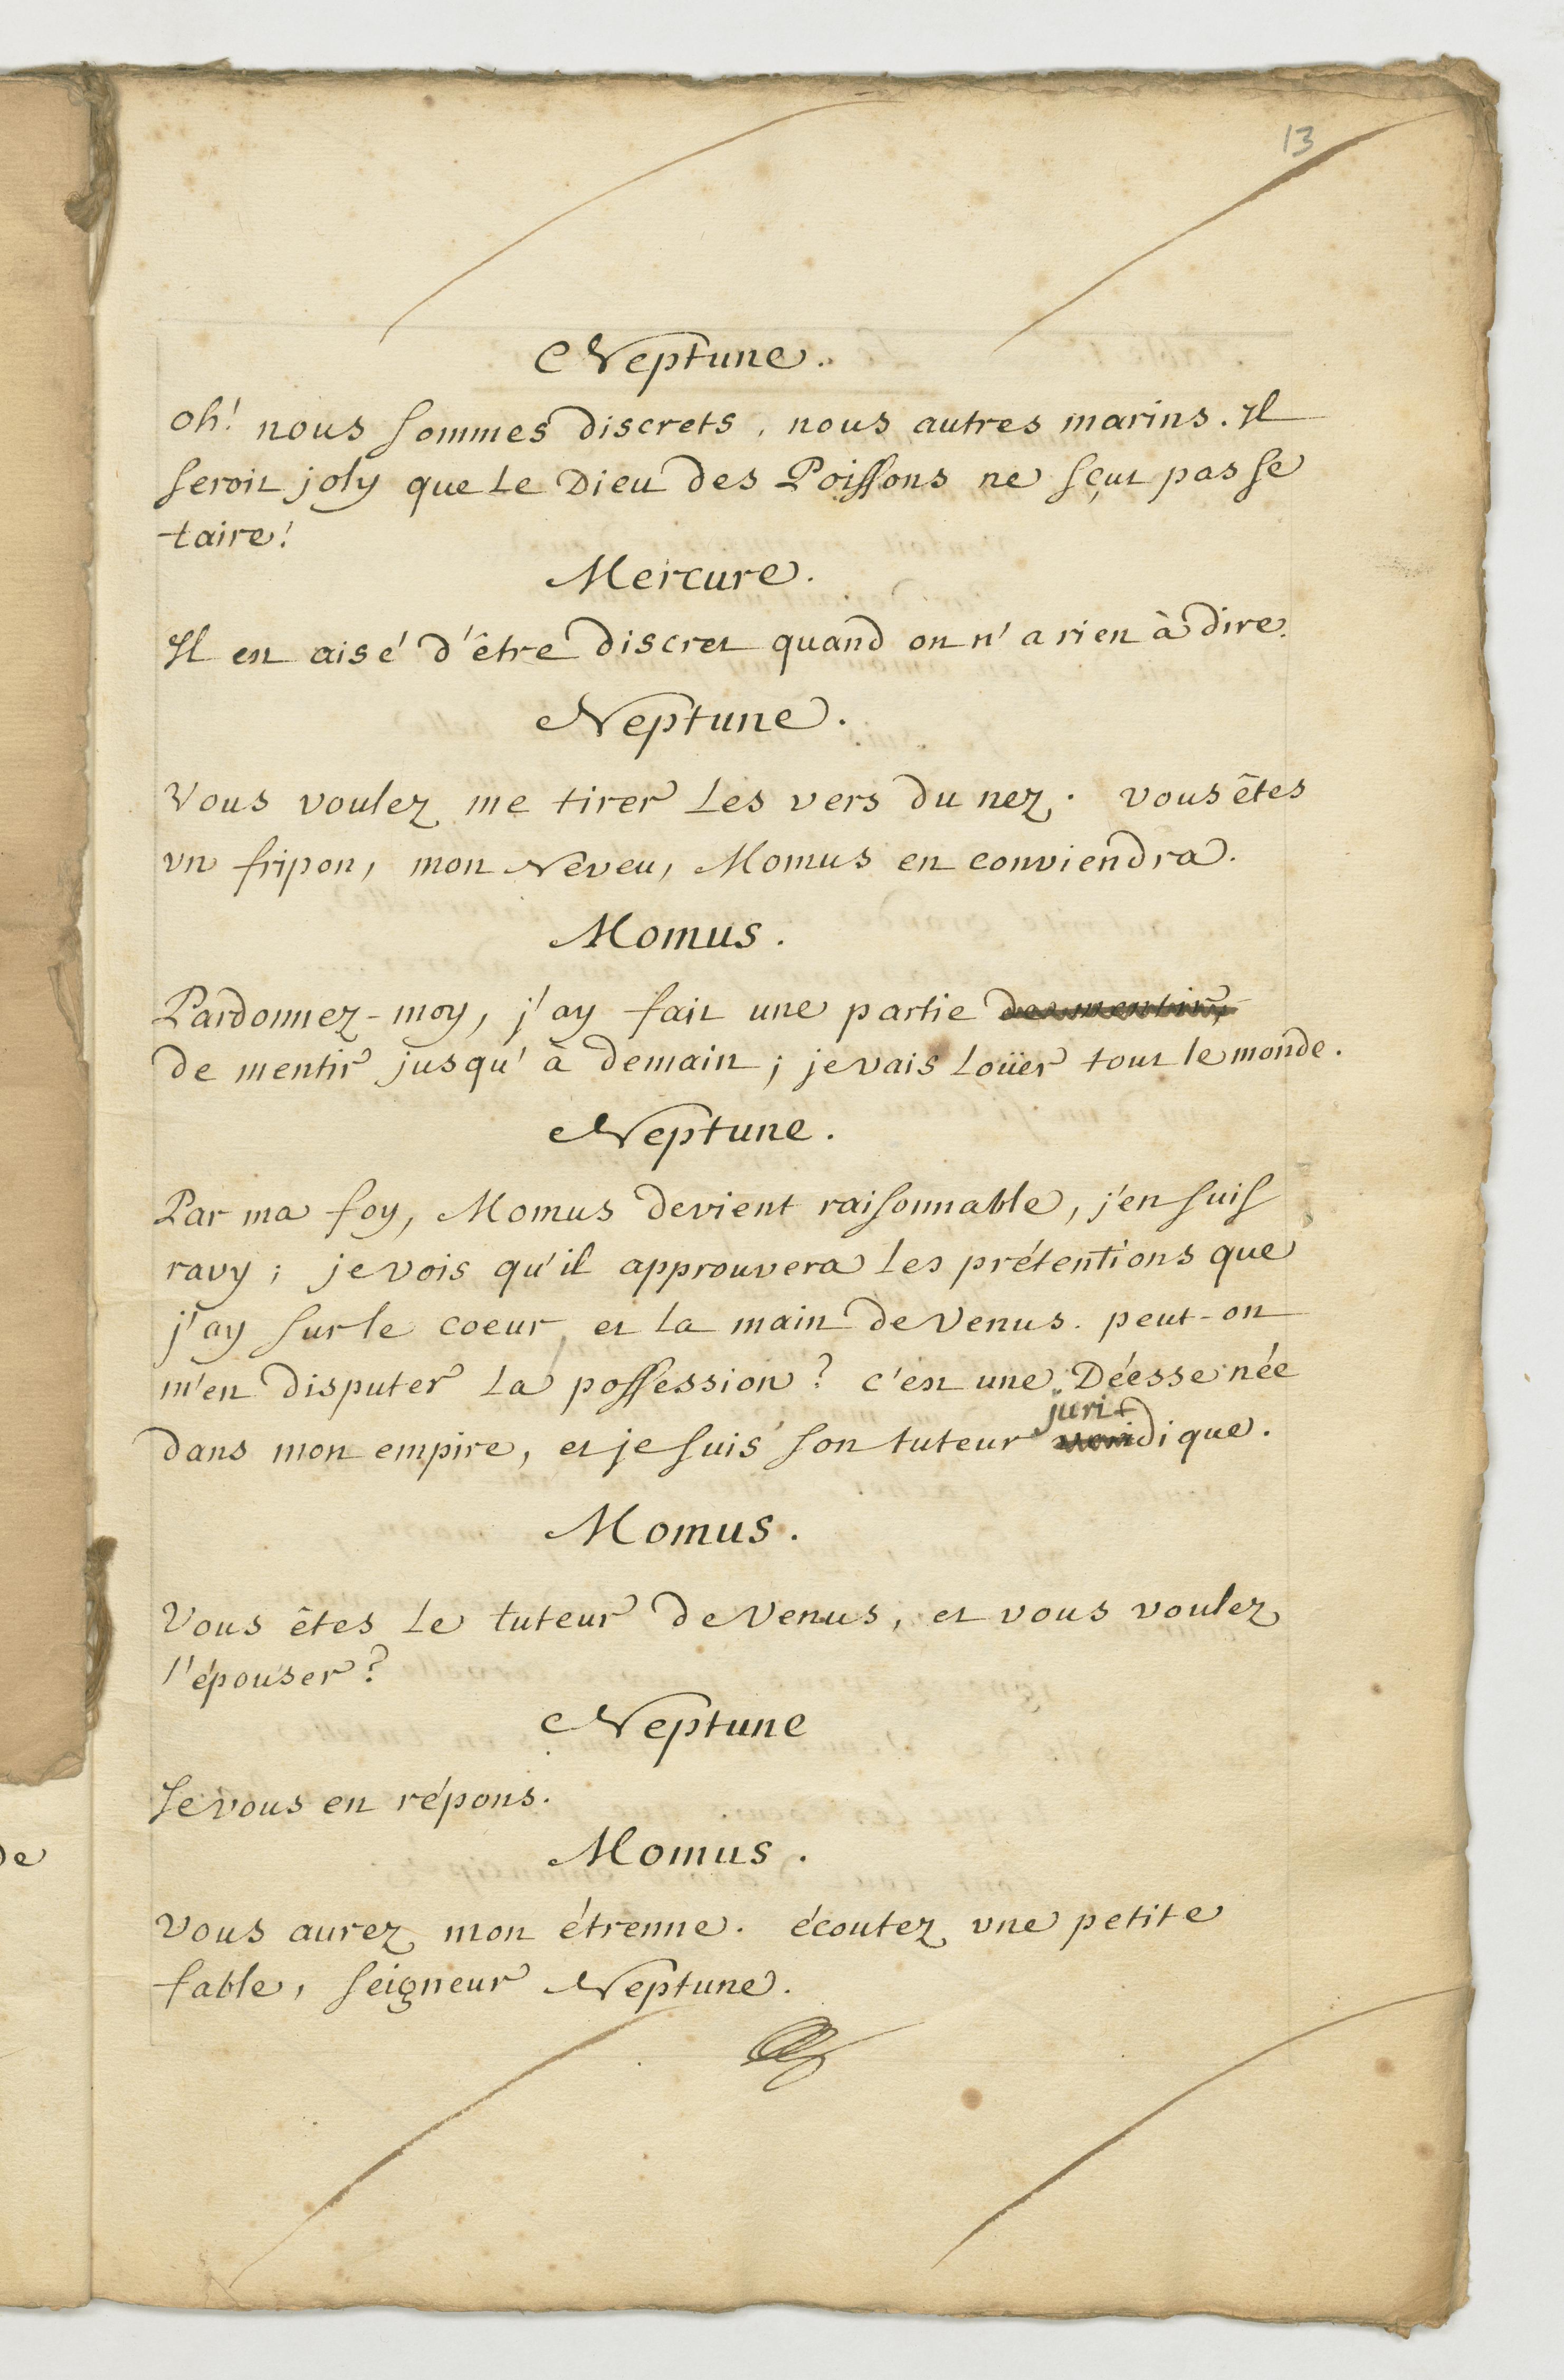 13
Neptune.
oh! nous sommes discrets, nous autres marins. Il
seroit joly que le Dieu des Poissons ne sçut pas se
taire!
Mercure.
Il est aisé d'être discret quand on n'a rien à dire.
Neptune.
Vous voulez me tirer les vers du nez. vous êtes
vn fripon, mon Neveu, Momus en conviendra.
Momus.
Pardonnez-moy, j'ay fait une partie
de mentir jusqu'à demain; je vais loüer tout le monde.
Neptune.
Par ma foy, Momus devient raisonnable, j'en suis
ravy; je vois qu'il approuvera les prétentions que
j'ay sur le coeur, et la main de Venus. peut-on
m'en disputer la possession? c'est une Déesse née
juri
dans mon empire, et je suis son tuteur dique.
Momus.
Vous êtes le tuteur de Venus, et vous voulez
l'épouser?
Neptune
Je vous en répons.
Momus.
de
vous aurez mon étrenne. écoutez vne petite
fable, seigneur Neptune.